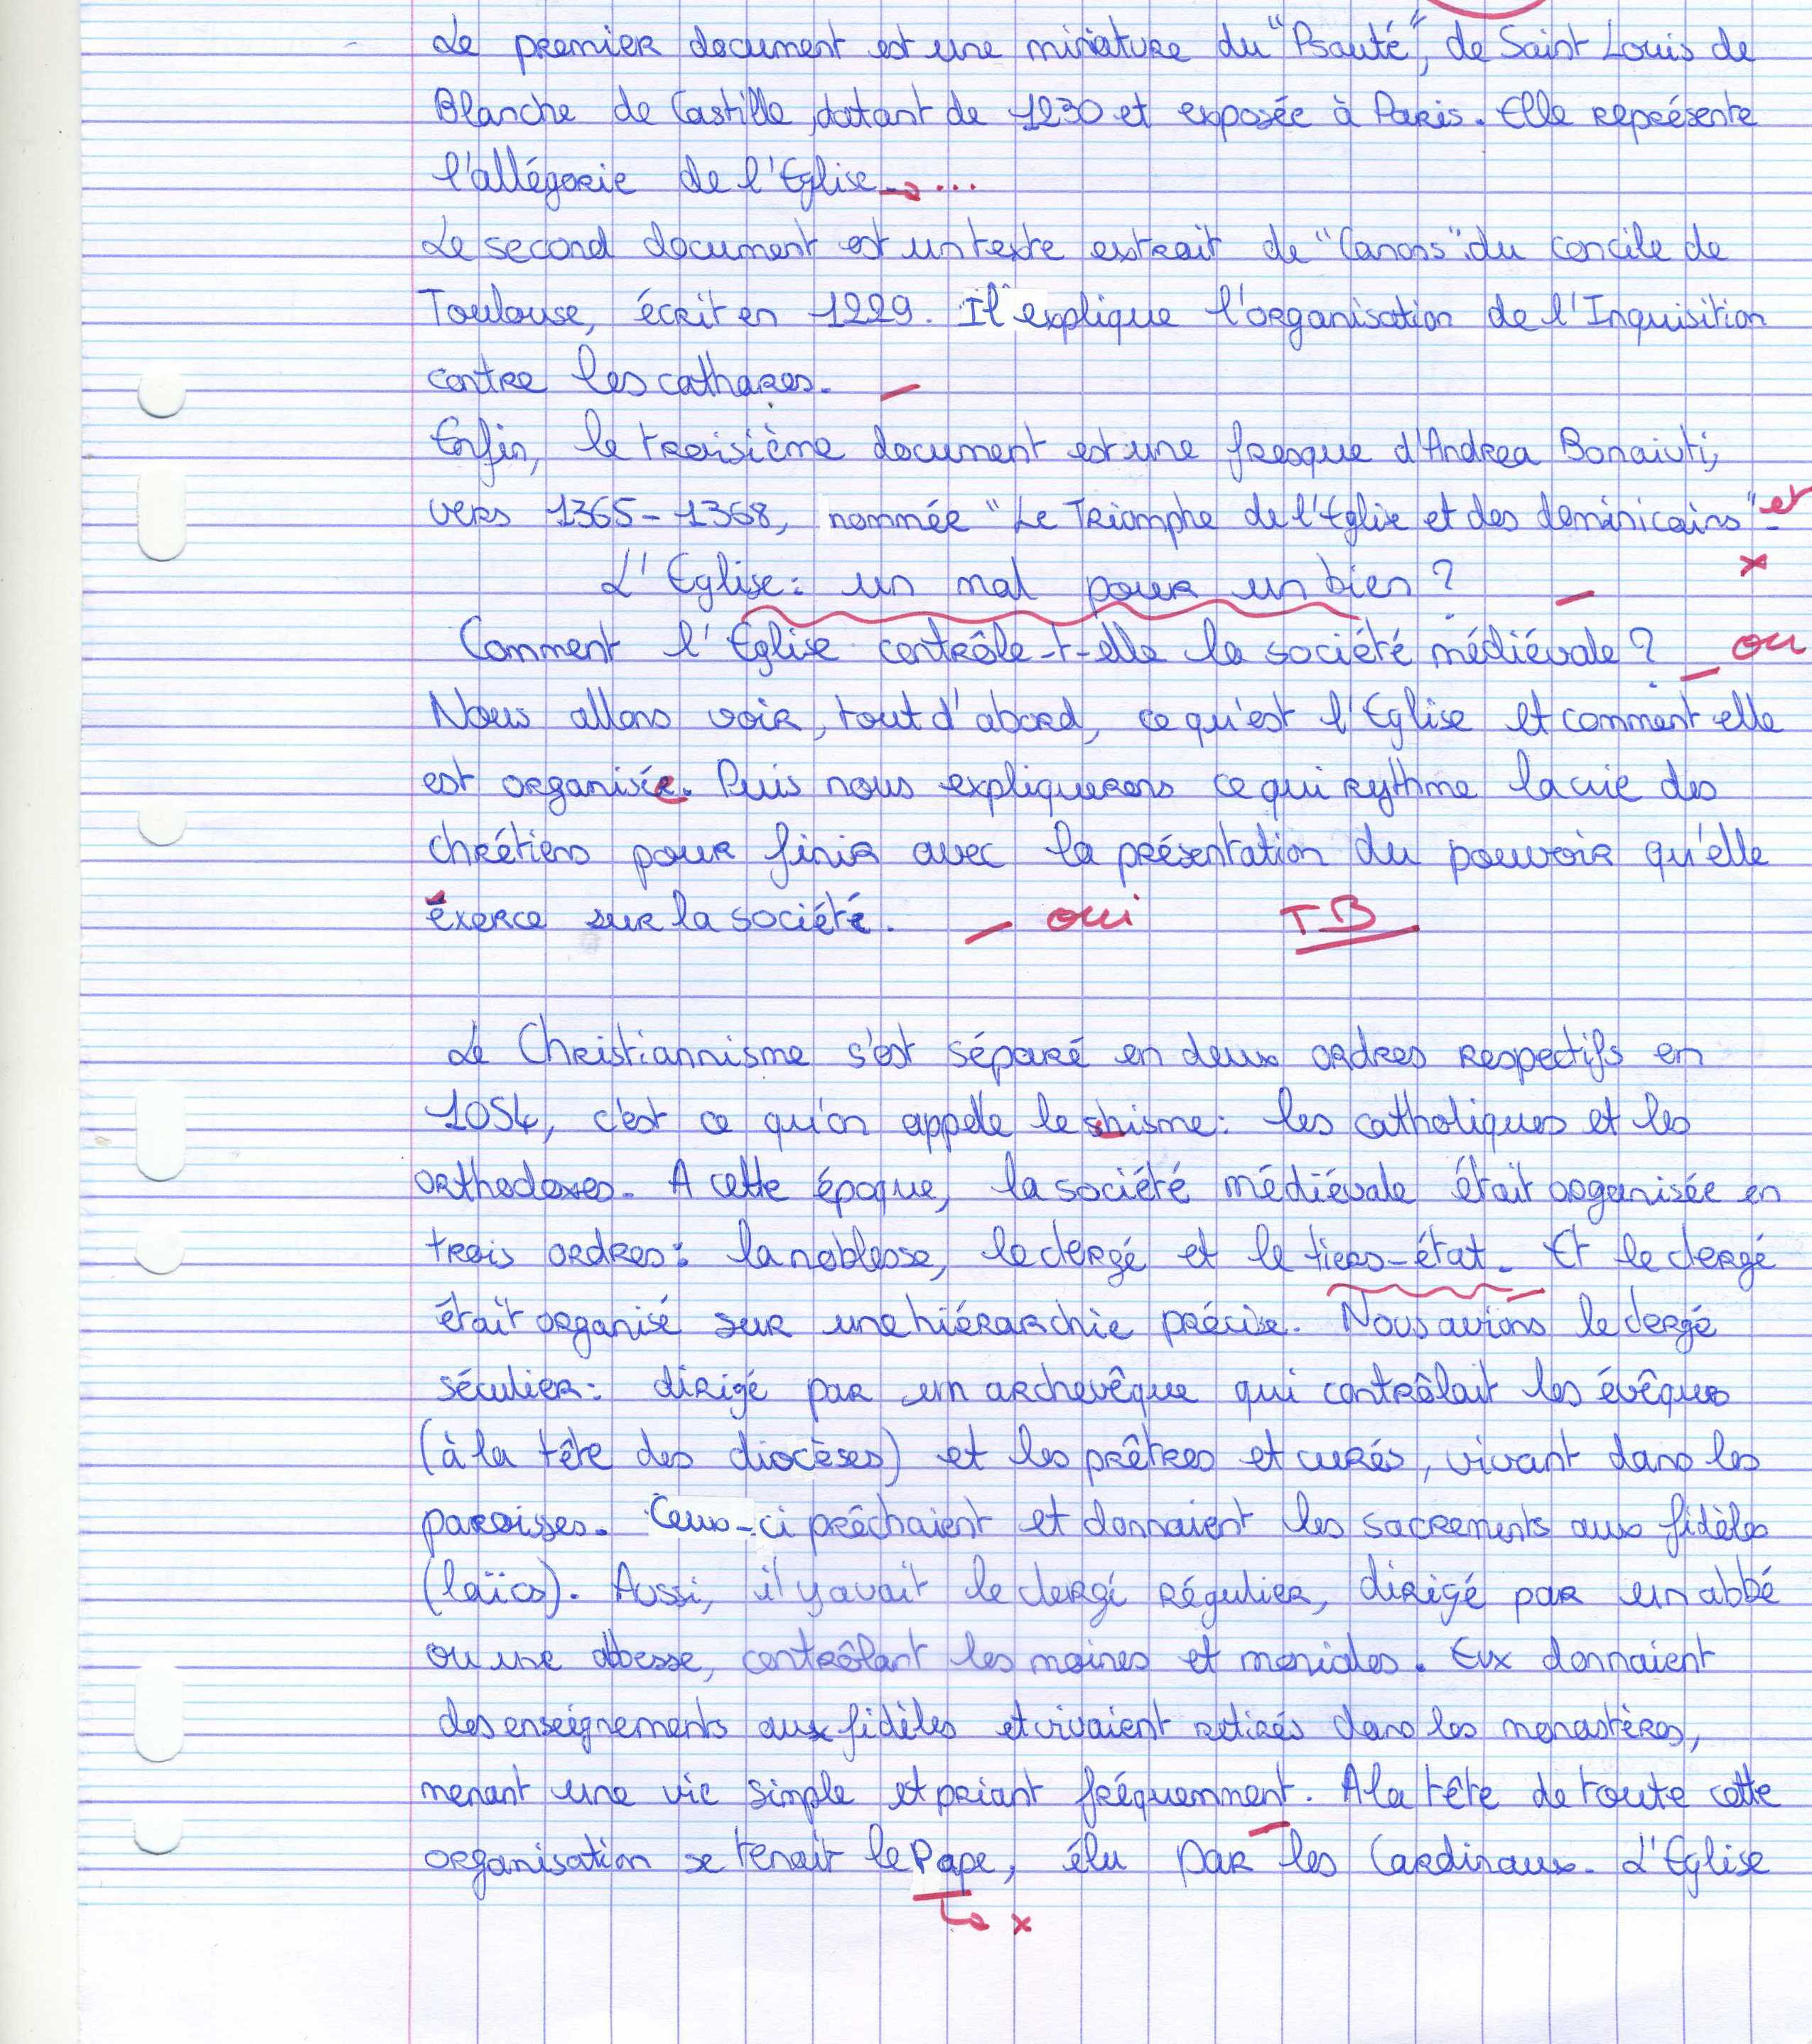 Le premier document est une miniature du "Psauté", de Saint Louis de
Blanche de Castille, datant de 1230 et exposée à Paris. Elle représente
l'allégorie de l'Eglise. → ...
Le second document est un texte extrait de "Canons" du concile de
Toulouse, écrit en 1229. Il explique l'organisation de l'Inquisition
contre les cathares.
Enfin, le troisième document est une fresque d'Andrea Bonaiuti,
vers 1365-1368, nommée "Le Triomphe de l'Eglise et des dominicains". et
x
L'Eglise: un mal pour un bien ?
Comment l'Eglise contrôle-t-elle la société médiévale ? oui
Nous allons voir, tout d'abord, ce qu'est l'Eglise et comment elle
est organisée. Puis nous expliquerons ce qui rythme la vie des
chrétiens pour finir avec la présentation du pouvoir qu'elle
éxerce sur la société. oui TB
Le Christiannisme s'est séparé en deux ordres respectifs en
1054, c'est ce qu'on appelle le shisme: les catholiques et les
orthodoxes. A cette époque, la société médiévale était organisée en
trois ordres: la noblesse, le clergé et le tiers-état. Et le clergé
était organisé sur une hiérarchie précise. Nous avions le clergé
séculier: dirigé par un archevêque qui contrôlait les évêques
(à la tête des diocèses) et les prêtres et curés, vivant dans les
paroisses. Ceux-ci prêchaient et donnaient les sacrements aux fidèles
(laïcs). Aussi, il y avait le clergé régulier, dirigé par un abbé
ou une abbesse, contrôlant les moines et moniales. Eux donnaient
des enseignements aux fidèles et vivaient retirés dans les monastères,
menant une vie simple et priant fréquemment. A la tête de toute cette
organisation se tenait le Pape, élu par les Cardinaux. L'Eglise
↳ x